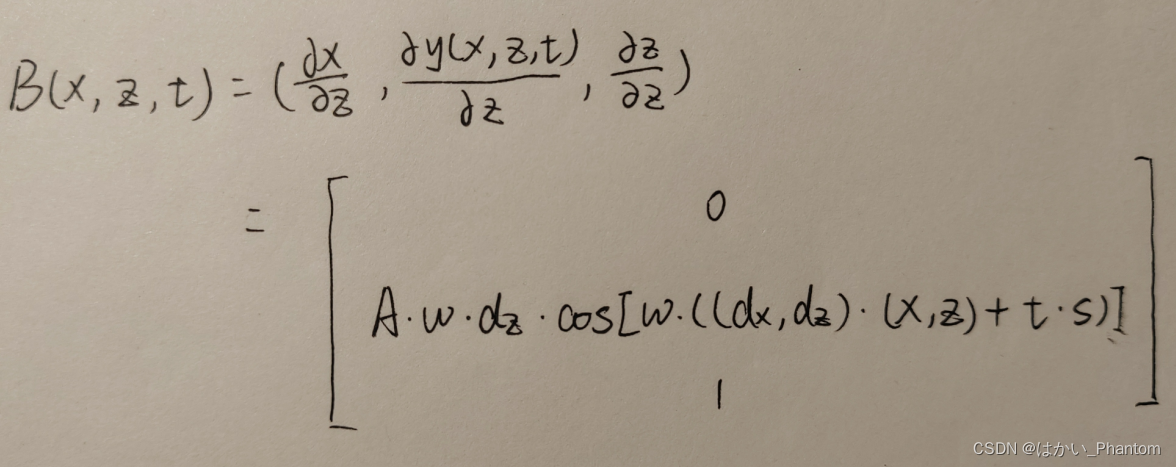 B(x, z, t) = (∂x/∂z , ∂y(x, z, t)/∂z , ∂z/∂z)
= [ 0
A·w·dz·cos[w·((dx, dz)·(x, z) + t·s)]
1 ]
CSDN @はかい_Phantom